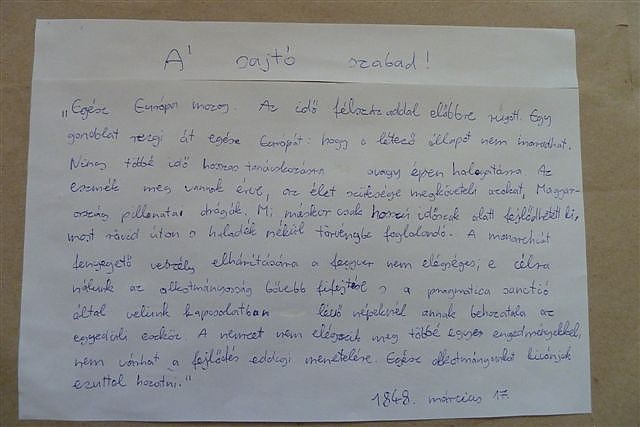 A' sajtó szabad!
"Egész Európa mozog. Az idő félszázaddal előbbre rúgott. Egy
gondolat rezgi át egész Európát: hogy a létező állapot nem maradhat.
Nincs többé idő hosszas tanácskozásra avagy éppen halogatásra Az
eszmék meg vannak érve, az élet szüksége megköveteli azokat, Magyar-
ország pillanatai drágák, Mi máskor csak hosszú időszak alatt fejlődhetett ki,
most rövid úton s haladék nélkül törvénybe foglalandó. A monarchiát
fenyegető veszély elhárítására a fegyver nem elégséges; e célra
nálunk az alkotmányosság bővebb kifejtése s a pragmatica sanctió
által velünk kapcsolatban lévő népeknél annak behozatala az
egyedüli eszköz. A nemzet nem elégszik meg többé egyes engedményekkel,
nem várhat a fejlődés eddigi menetelére. Egész alkotmányunkat kívánjuk
ezuttal hozatni."
1848. március 17.